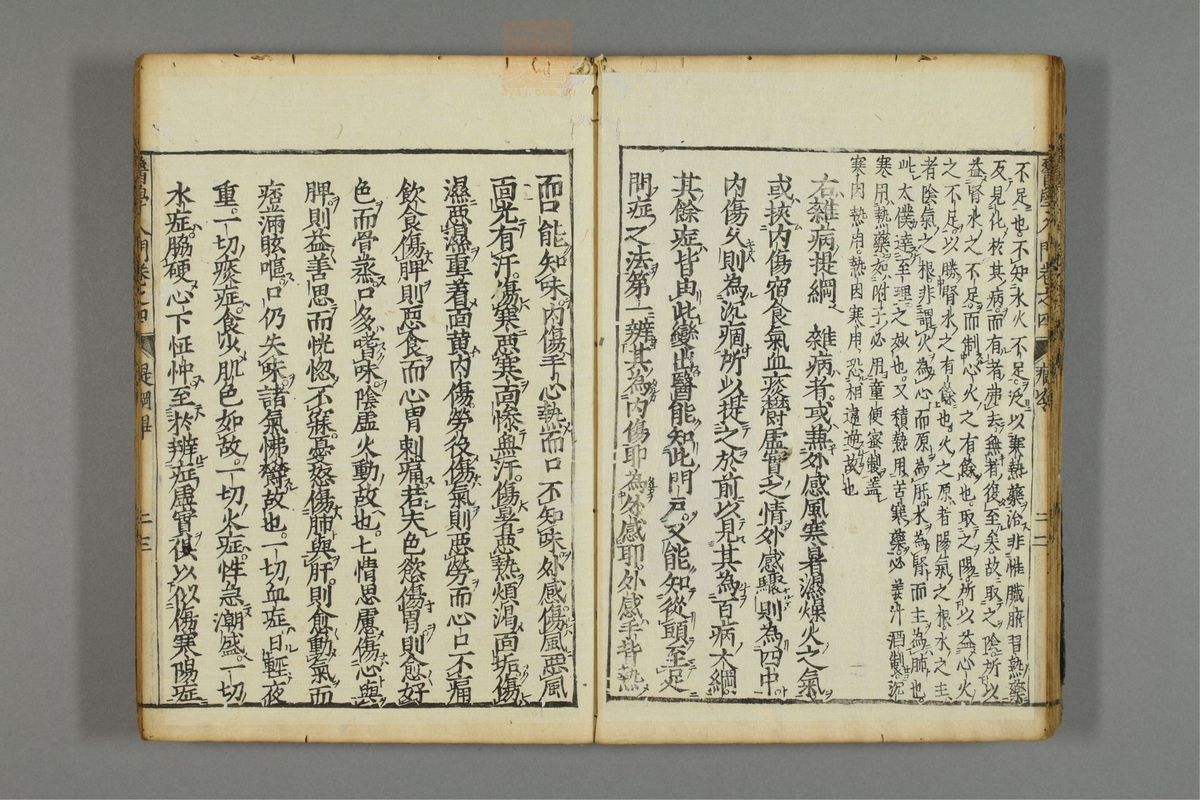 不足也不知水火不足及以寒熱藥治非惟臟腑習熱藥
反見化於其病而有者弗去無者復至矣故取之陰所以
益腎水之不足而制心火之有餘也取之陽所以益心火
之不足以勝腎水之有餘也火之原者陽氣之根水之主
者陰氣之根非謂火為心而原為肝水為腎而主為肺也
此太僕達至理之妙也又積熱用苦寒藥必薑汁酒製沉
寒用熱藥如附子必用童便蜜制蓋
寒因熱用熱因寒用恐相違逆故也
右雜病提綱 雜病者或兼外感風寒暑濕燥火之氣
或挾內傷宿食氣血痰鬱虛實之情外感驟則為四中
內傷久則為沉痼所以提之於前以見其為百病大綱
其餘症皆由此變出醫能知此門戶又能知從頭至足
問症之法第一辨其為內傷耶為外感耶外感手背熱
而口能知味內傷手心熱而口不知味外感傷風惡風
面光有汗傷寒惡寒面慘無汗傷暑惡熱煩渴面垢傷
濕惡濕重着面黃內傷勞役傷氣則惡勞而心口不痛
飲食傷脾則惡食而心胃刺痛若夫色慾傷腎則愈好
色而骨蒸口多嗜味陰虛火動故也七情思慮傷心與
脾則益善思而恍惚不寐憂愁傷肺與肝則愈動氣而
痞滿眩嘔口仍失味諸氣怫鬱故也一切血症日輕夜
重一切痰症食少肌色如故一切火症性急潮盛一切
水症脇硬心下怔忡至於辨症虛實俱以似傷寒陽症
醫學入門卷之四 提綱 二三
醫學入門卷之四 二二